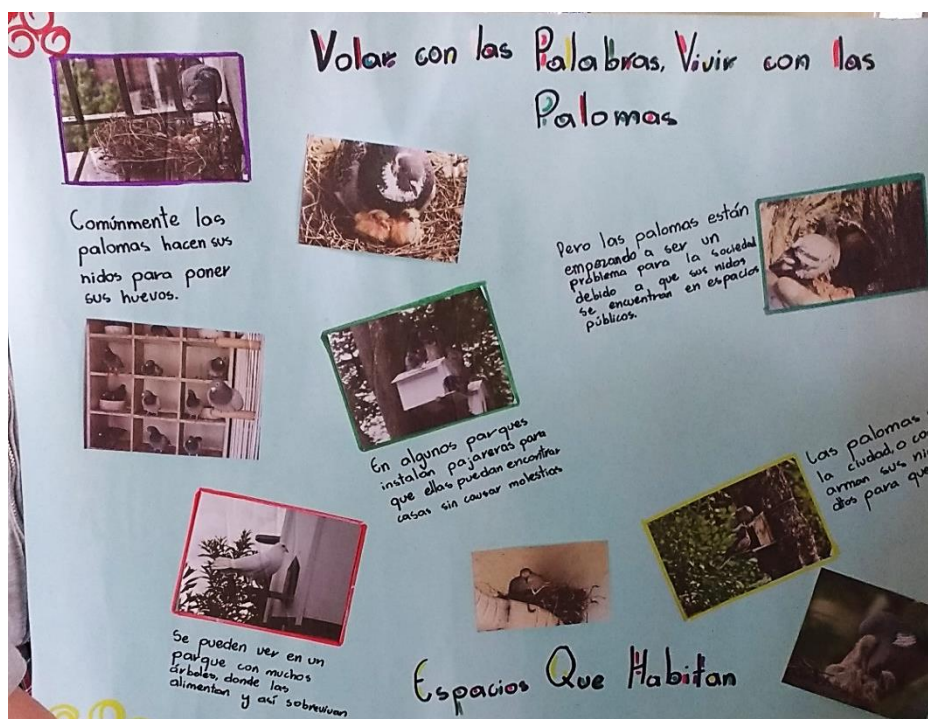 Volar con las Palabras, Vivir con las
Palomas
Comúnmente las
palomas hacen sus
nidos para poner
sus huevos.
Pero las palomas están
empezando a ser un
problema para la sociedad
debido a que sus nidos
se encuentran en espacios
públicos.
En algunos parques
instalan pajareras para
que ellas puedan encontrar
casas sin causar molestias
Las palomas
la ciudad, o
arman sus
para que
Se pueden ver en un
parque con muchos
árboles, donde las
alimentan y así sobrevivan
Espacios Que Habitan